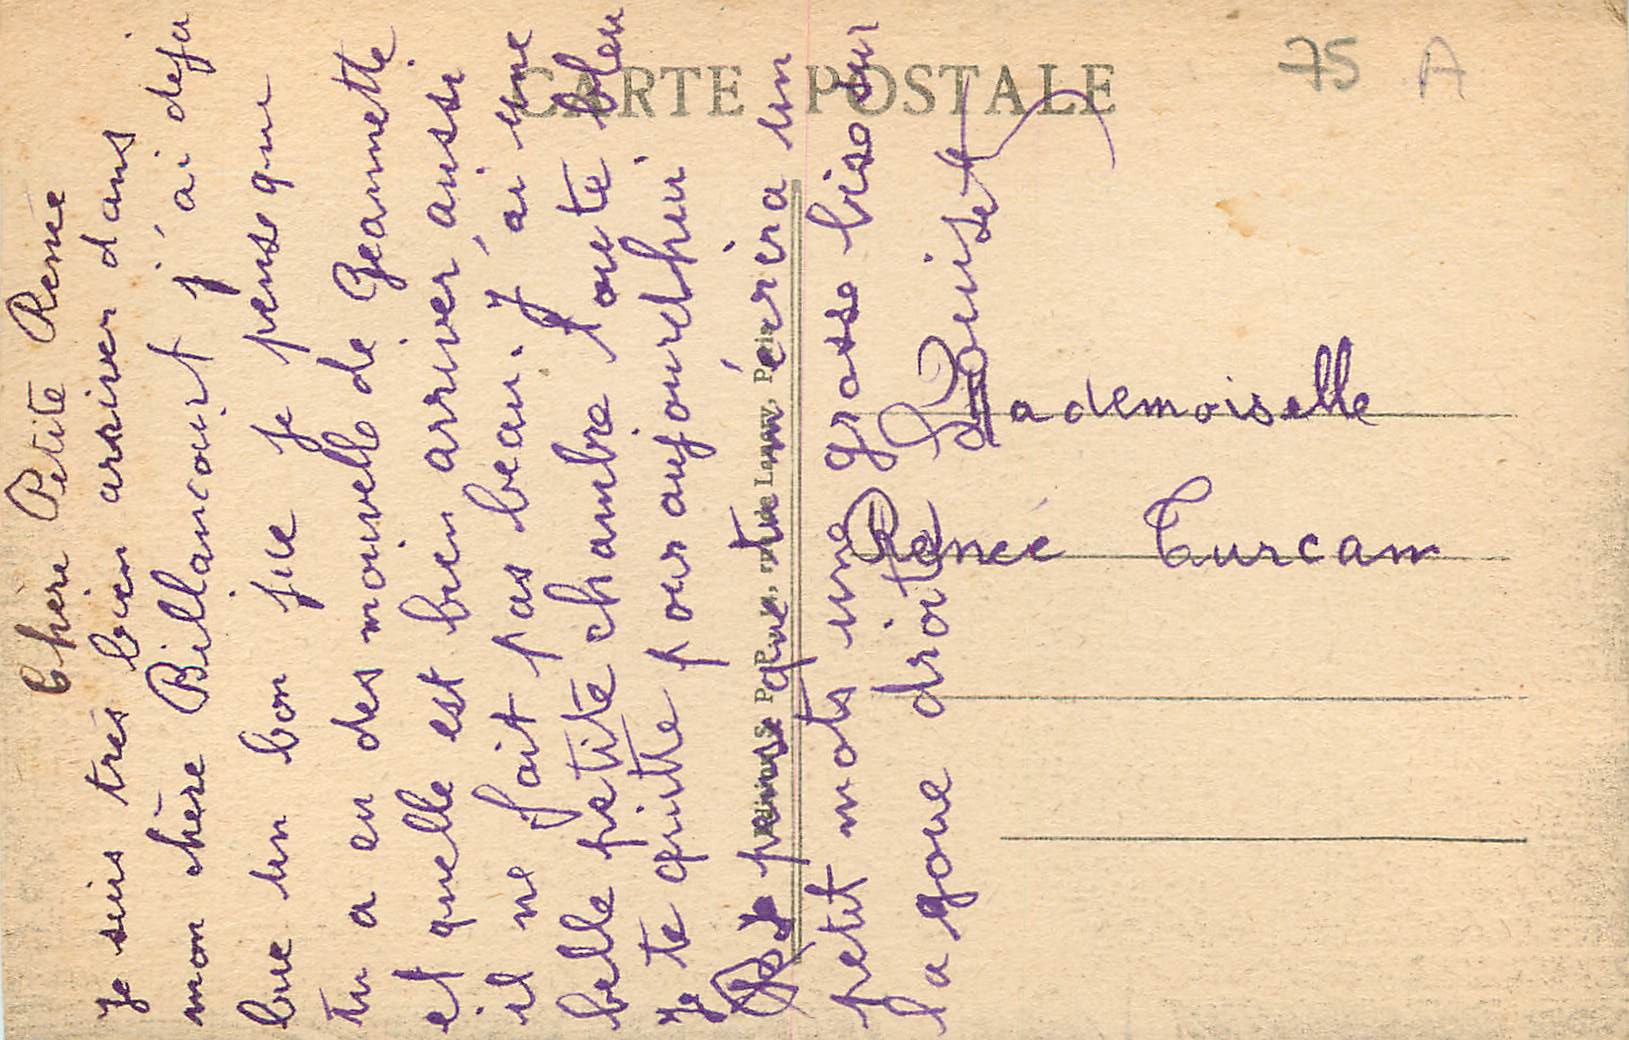 CARTE POSTALE
75 A
Chère Petite Renée
Je suis très bien arriver dans
mon chère Billancourt j'ai deja
bue un bon jue je pense que
tu a eu des nouvelle de Jeannette
et quelle est bien arriver aussi
il ne fait pas beau. j'ai une
belle petite chambre toute bleu
Je te quitte pour aujourd'hui
Je pense que tu m'écrira un
petit mots une grosse bise sur
la joue droite Louiset
Mademoiselle
Renée Turcam